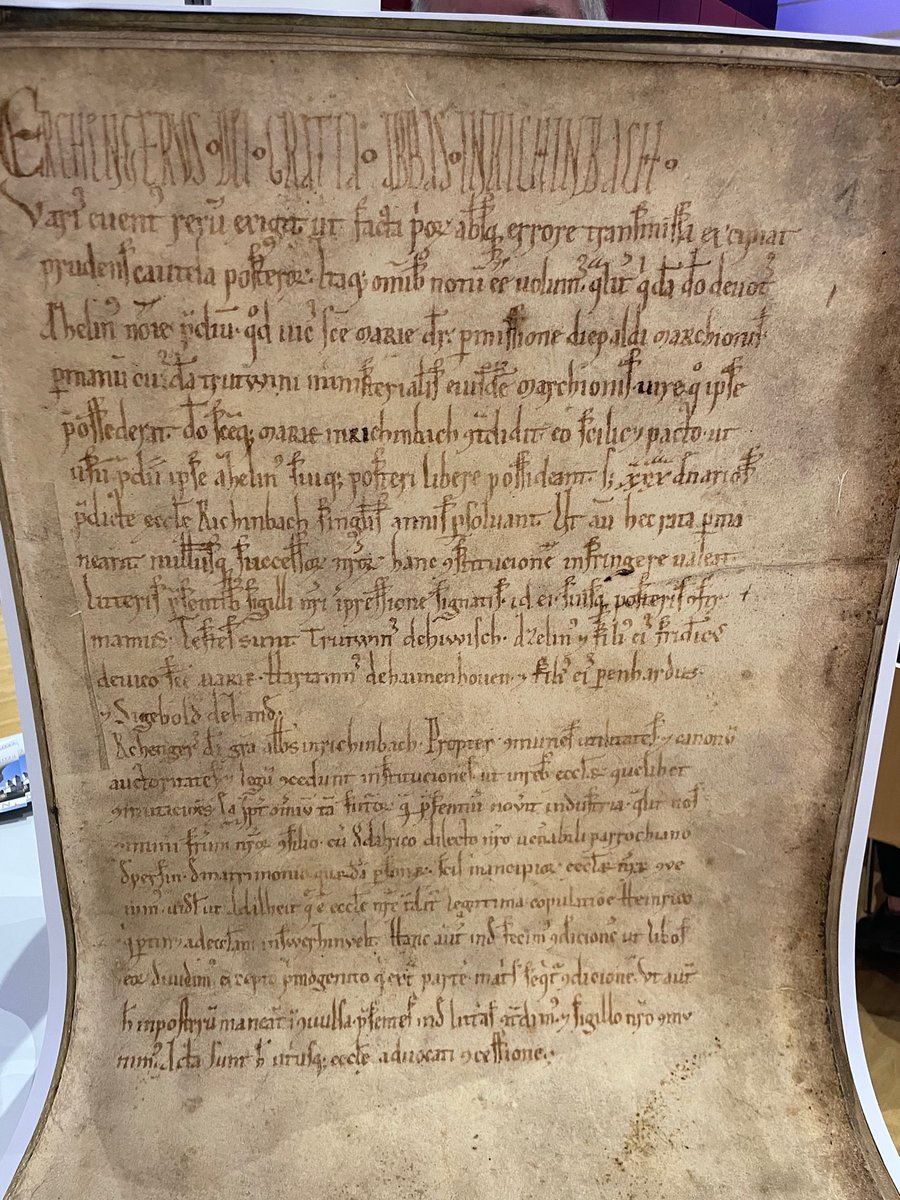 ERCHINGERUS · DI · GRATIA · ABBAS · IN RICHINBACH ·
Varı͛ euent͛ reru͛ exigit ut facta p͛oꝝ absq; errore transmissa excipiat
prudens cautela posteroꝝ. Itaq; om̅ib͛ notu͛ e͛e volum͛. q͛lit͛ q͛da͛ d͞o deuot͛
Ahelin͛ no͞ie p͛diu͛. q͛d iuc͛ sc͞e MARIE d͞r. p͛missione diepaldi MARchionis.
p͛ manu͛ cui͛da͛ trutwini ministerialis eiusde͛ MARchionis. iure q͛ ipse
possederat. d͞o sc͞eq; MARIE in Richinbach t͛didit. eo scilic͛ pacto. ut
p͛diu͛ ipse Ahelin͛ suiq; posteri libere possideant. s͛ xxx denarios
p͛dicte eccl͞e Richinbach singlis annis p͛soluant. Ut au͛ hec rata p͛ma
neant. nullusq; successoꝝ n͞roꝝ hanc ꝯstitucione͛ infringere ualeat.
litteris p͛sentib͛ sigilli n͞ri i͛pressione signatis. id ei. suisq; posteris ꝯfir
mamus. Testes sunt. Trutwin͛ de hiwisch. Ozelin͛ ⁊ fili͛ ei͛ frideric͛
de uico sc͞e MARIE. Hartman͛ de haimenhouen. ⁊ fili͛ ei͛ perenhardus.
⁊ Sigebold de hand.
Erchenger͛ d͞i gr͞a abbas in richinbach. Propter ꝯmunes utilitates ⁊ canonu͛
auctoritates ⁊ legu͛ ꝯcedunt͛ instituciones. ut in reb͛ eccl͞iae quelibet
ꝯmutaciones omniu͛ ta͛ futuroꝝ q͛ p͛sentiu͛ nouit industria. q͛lit͛ nos
ꝯmuni fr͞m n͞roꝝ ꝯsilio. cu͛ Odalrico dilecto n͞ro uen͛abili parrochiano
d͛ matrimonio quarunda͛ p͛sonaꝝ. scil͛ mancipioꝝ eccl͞iae n͞rae ꝯue
nim͛. uidl͛ ut Adilheit q͛ e͛ eccl͞e n͞re t͛dit͛ legitima copulatio͛e Heinrico
q͛ p͛tin͛ ad eccl͞am in Hanc aut͛ ind͛ fecim͛ ꝯdicione͛ ut lib͛os
eoꝝ diuidim͛. excepto p͛mogenito q͛ parte͛ mat͛s seq͛t͛ ꝯdicione͛. Ut aut͛
h͛ in posteru͛ maneat i͛ꝯuulsa. p͛sentes ind͛ litt͛as t͛didim͛. ⁊ sigillo n͞ro ꝯmu
nim͛. Acta sunt h͛ utriusq; eccl͞e aduocati ꝯcessione.